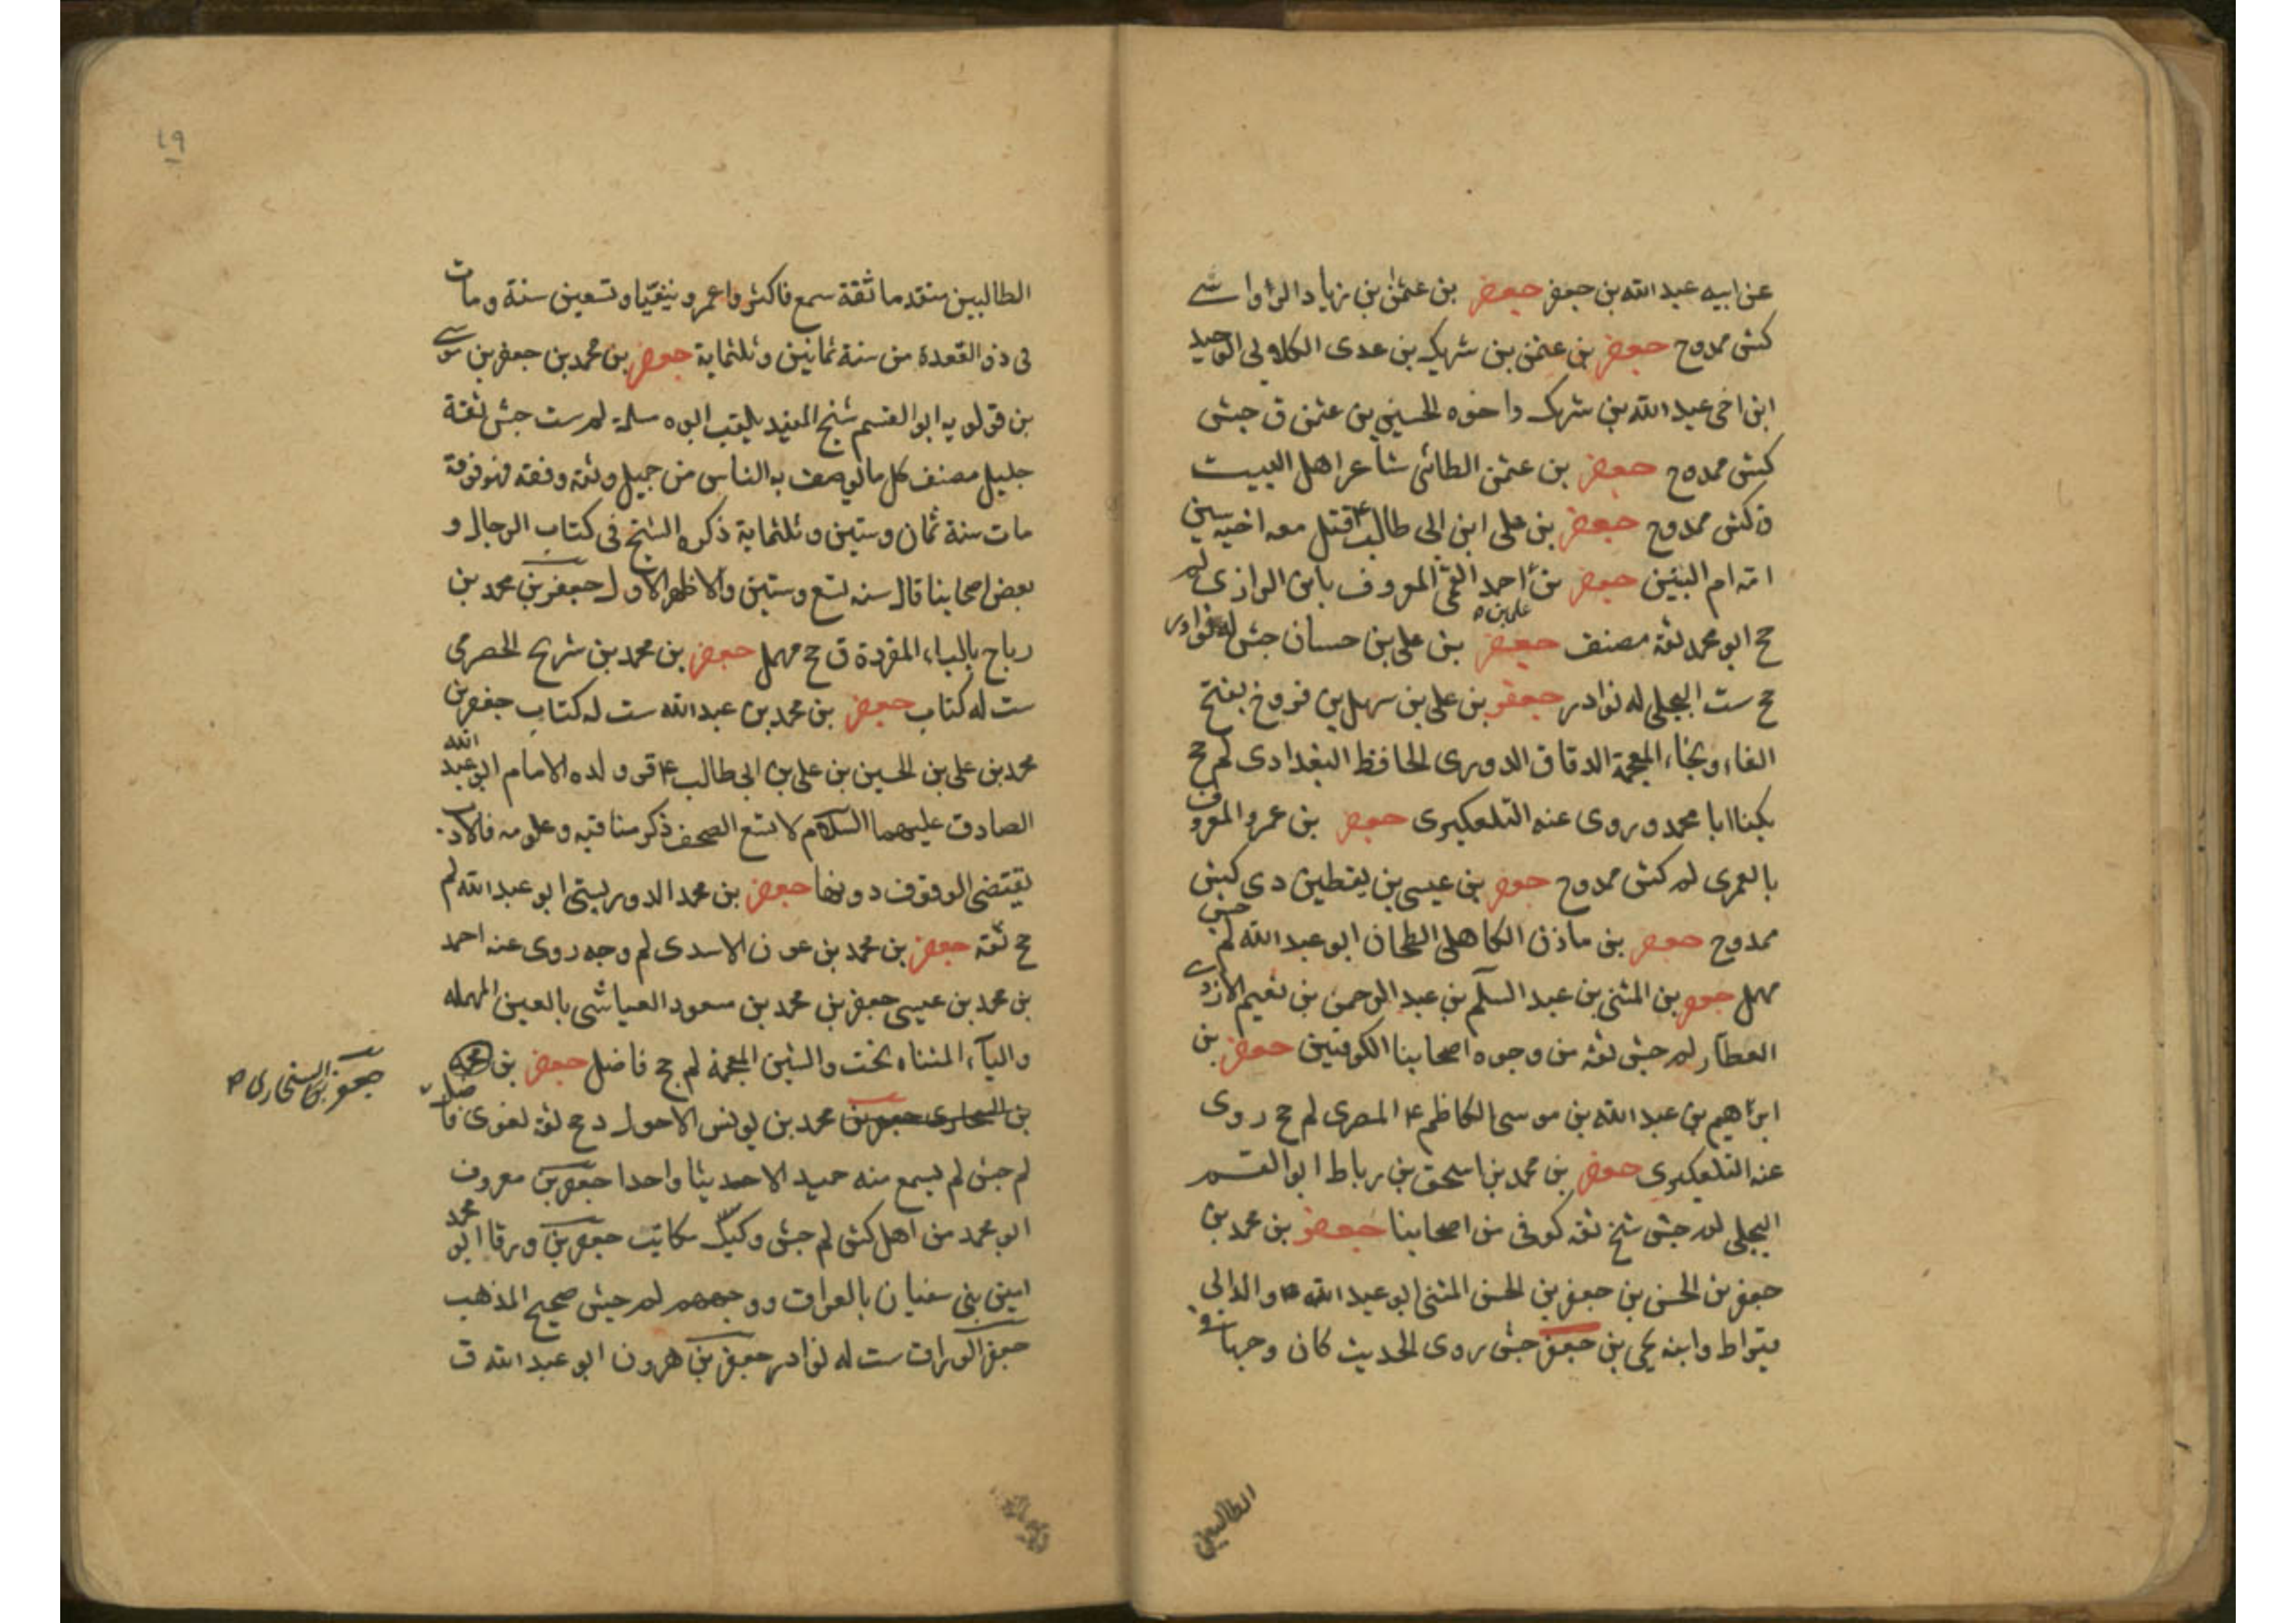 عن ابيه عبد الله بن جعفر جعفر بن عثمن بن زياد الرواسى
كش ممدوح جعفر بن عثمن بن شريك بن عدى الكلابى الوحيد
ابن اخى عبد الله بن شريك واخوه الحسين بن عثمن ق جش
كش ممدوح جعفر بن عثمن الطائى شاعر اهل البيت
ق كش ممدوح جعفر بن على ابن ابى طالب ع قتل معه اخيه سين
امه ام البنين جعفر بن احمد القمى المعروف بابن الرازى لم
على بن ه
جح ابو محمد ثقة مصنف جعفر بن على بن حسان جش له نوادر
جح ست البجلى له نوادر جعفر بن على بن سهل بن فروخ بفتح
الفاء وبخاء المعجمة الدقاق الدورى الحافظ البغدادى لم جح
يكنا ابا محمد وروى عنه التلعكبرى جعفر بن عمرو المعروف
بالعمرى لم كش ممدوح جعفر بن عيسى بن يقطين دى كش
ممدوح جعفر بن مازن الكاهلى الطحان ابو عبد الله لم جش
مهمل جعفر بن المثنى بن عبد السلم بن عبد الرحمن بن نعيم الازدى
العطار لم جش ثقه من وجوه اصحابنا الكوفيين جعفر بن
ابراهيم بن عبد الله بن موسى الكاظم ع المصرى لم جح روى
عنه التلعكبرى جعفر بن محمد بن اسحق بن رباط ابو القسم
البجلى لم جش شيخ ثقه كوفى من اصحابنا جعفر بن محمد بن
جعفر بن الحسن بن جعفر بن الحسن المثنى ابو عبد الله والد ابى
قيراط وابنه يحيى بن جعفر جش روى الحديث كان وجها فى
الطالبيين
٤٩
الطالبيين متقدما ثقة سمع فاكثر واعمر ونيفا وتسعين سنة ومات
فى ذو القعدة من سنة ثمانين وثلثماية جعفر بن محمد بن جعفر بن موسى
بن قولويه ابو القسم شيخ المفيد يلقب ابوه سلمة لم ست جش ثقة
جليل مصنف كل ما يوصف به الناس من جميل وثقه وفقه فهو فوقه
مات سنة ثمان وستين وثلثماية ذكره الشيخ فى كتاب الرجال و
بعض اصحابنا قال سنه تسع وستين والاظهر الاول جعفر بن محمد بن
رباح بالباء المفردة ق جح مهمل جعفر بن محمد بن شريح الحضرمى
ست له كتاب جعفر بن محمد بن عبد الله ست له كتاب جعفر بن
محمد بن على بن الحسين بن على بن ابى طالب ع قر ولده الامام ابو عبد الله
الصادق عليهما السلام لا تسع الصحف ذكر مناقبه وعلومه فالادب
يقتضى الوقوف دونها جعفر بن محمد الدوريستى ابو عبد الله لم
جح ثقه جعفر بن محمد بن عون الاسدى لم وجه روى عنه احمد
بن محمد بن عيسى جعفر بن محمد بن مسعود العياشى بالعين المهمله
والياء المثناه تحت والشين المعجمة لم جح فاضل جعفر بن محمد
جعفر بن السنجارى ص
بن محمد بن يونس الاحول د جح ثقه لغوى فاضل
لم جش لم يسمع منه حميد الا حديثا واحدا جعفر بن معروف
ابو محمد من اهل كش لم جش وكيل مكاتب جعفر بن ورقا ابو محمد
امين بنى سفيان بالعراق ووجههم لم جش صحيح المذهب
جعفر الوراق ست له نوادر جعفر بن هرون ابو عبد الله ق